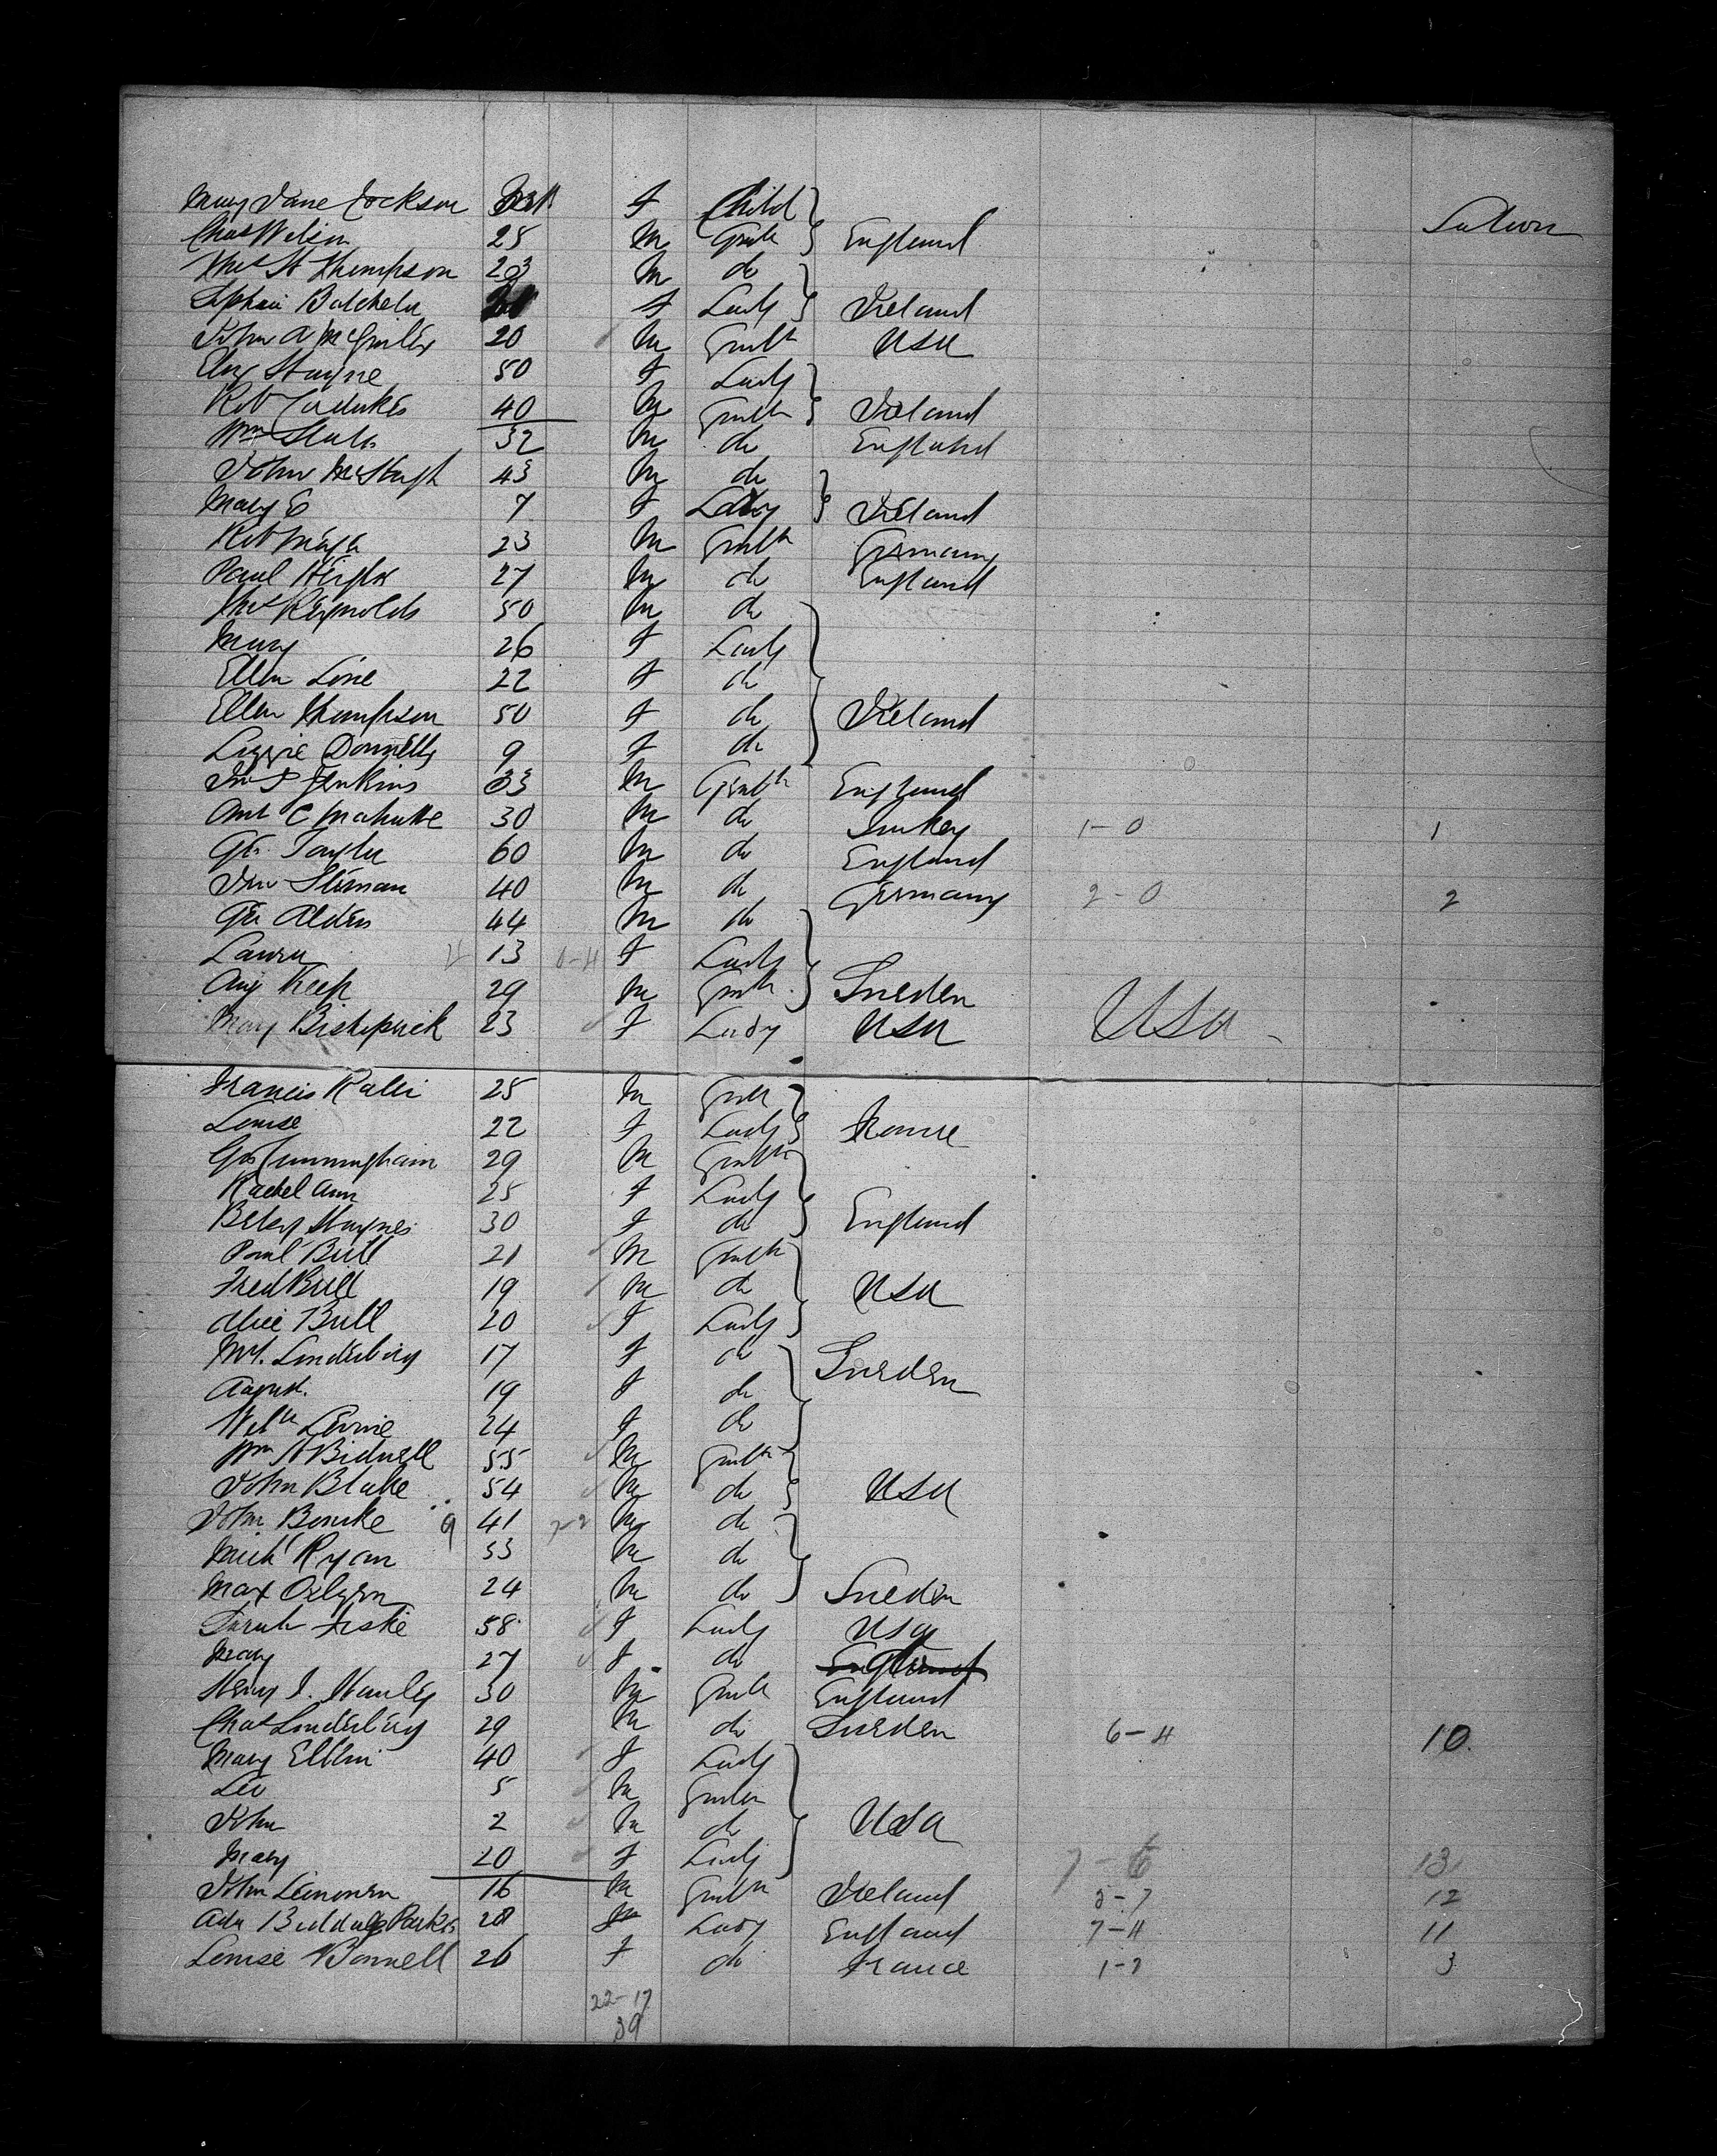 Mary Jane Cockson F Child Saloon
Chas Wilson 25 M Gentn England
Thos H Thompson 23 M do
Batchelor F Lady Ireland
John A McGinley 20 M Gentn USA
Stayne 50 F Lady
Robt 40 M Gentn Ireland
Wm 32 M do England
John McHugh 43 M do
Mary E 7 F Lady Ireland
Robt 23 M Gentn Germany
Paul 27 M do England
Thos Reynolds 50 M do
Mary 26 F Lady
Ellen Line 22 F do
Ellen Thompson 50 F do Ireland
Lizzie Donnelly 9 F do
Jno S Jenkins 33 M Gentn England
30 M do Turkey 1-0 1
Geo. Taylor 60 M do England
Jno 40 M do Germany 2-0 2
Geo Alden 44 M do
Laura 13 0-4 F Lady
Aug Keep 29 M Gentn Sweden
Mary 23 F Lady USA USA
Francis 25 M Gentn
Louise 22 F Lady France
Geo Cunningham 29 M Gentn
Rachel Ann 25 F Lady
Betsy Haynes 30 F do England
Paul Bull 21 M Gentn
Fred Bull 19 M do USA
Alice Bull 20 F Lady
Linderberg 17 F do Sweden
August. 19 F do
24 F do
Wm H Bidwell 55 M Gentn
John Blake 54 M do USA
John Bourke 9 41 7-2 M do
Mich Ryan 53 M do
Max 24 M do Sweden
Sarah Fiske 58 F Lady USA
Mary 27 F do England
Henry J. Hanley 30 M Gentn England
Chas Linderberg 29 M do Sweden 6-4 10
Mary 40 F Lady
Leo 5 M Gentn
John 2 M do USA
Mary 20 F Lady 7-6 13
John 16 M Gentn Ireland 5-7 12
Ada 28 F Lady England 7-4 11
Louise Bonnell 26 F do France 1-2 3
22-17
39